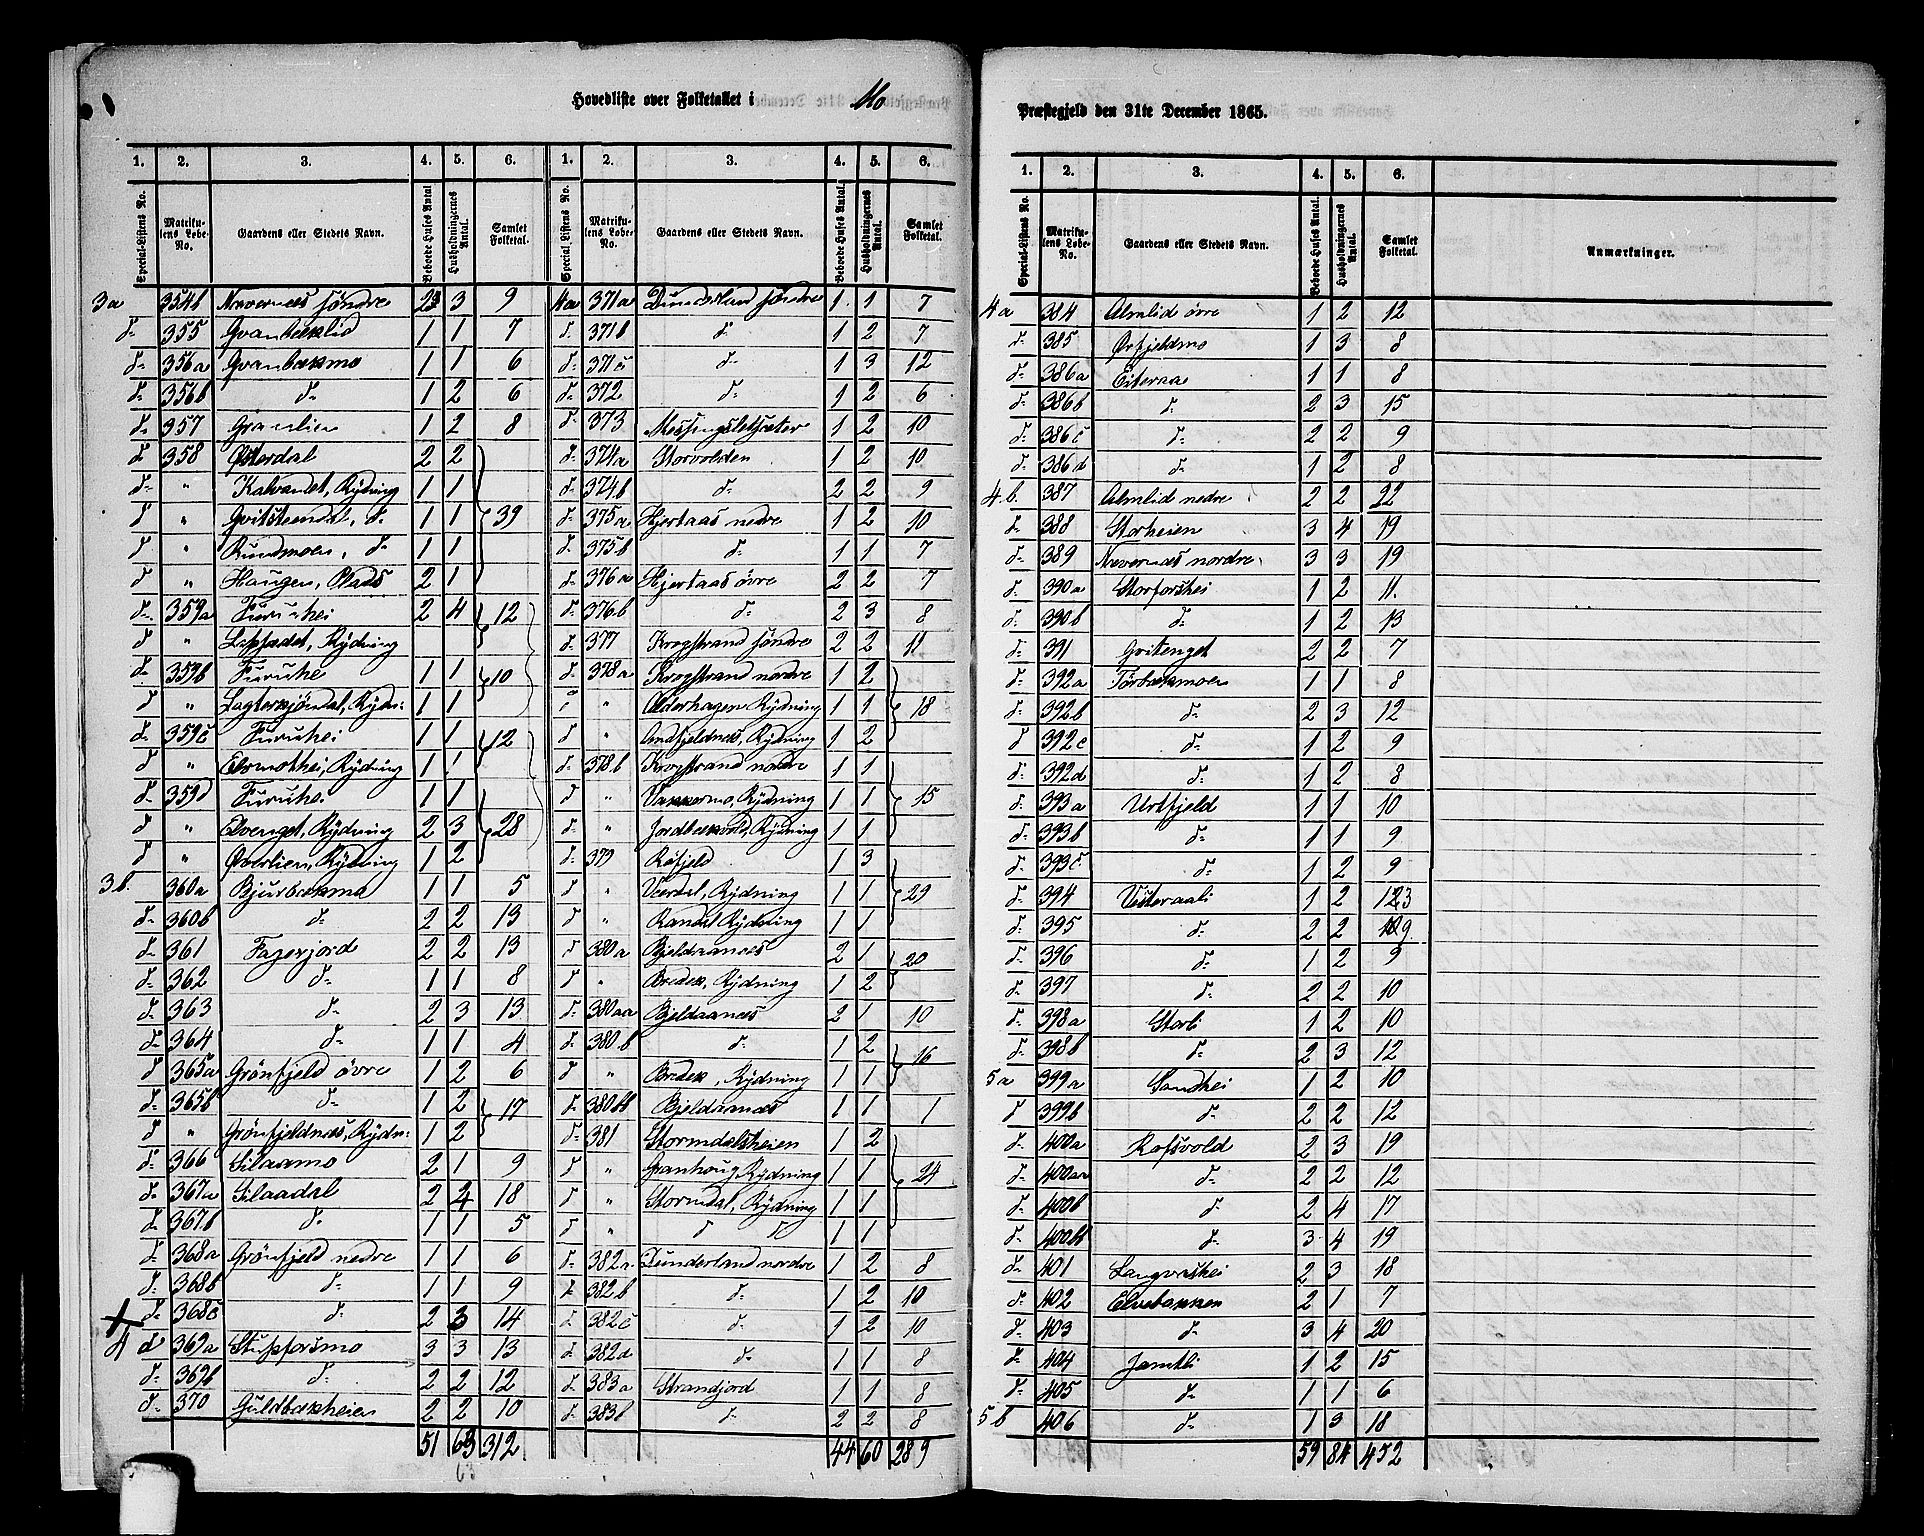 Hovedliste over Folketallet i Mo
Præstegjeld den 31te December 1865.
1. 2. 3. 4. 5. 6. 1. 2. 3. 4. 5. 6.
Special-Listens No. Matrikulens Løbe-No. Gaardens eller Stedets Navn. Beboede Huses Antal Husholdningernes Antal. Samlet Folketal. Special Listens No. Matrikulens Løbe-No. Gaardens eller Stedets Navn. Beboede Huses Antal. Husholdningernes Antal. Samlet Folketal.
3a 354b Nævernes søndre 2 3 9
d- 355 Gvanbæklid 1 1 7
d- 356a Gvanbækmo 1 1 6
d- 356b d- 1 2 6
d- 357 Grånlien 1 2 8
d- 358 Østerdal 2 2
d- " Kalvandet, Rydning 1 1
d " Gvitsteendal, d- 1 1 39
d " Rundmoen, d- 1 1
d " Haugen, Plads 2 1
d- 359a Furuhei 2 4 12
d " Rydning
d- 359b Furuhei 1 1 10
d " Rydn: 1 1
d- 359c Furuhei 1 1 12
d " Rydning 1 1
d- 359d Furuhei 1 1
d " Elvenget, Rydning 2 3 28
d " Øverlien, Rydning 1 2
3b. 360a Bjurbækmo 1 1 5
d- 360b d- 2 2 13
d- 361 Fagerjord 2 2 13
d- 362 d- 1 1 8
d- 363 d- 2 3 13
d- 364 d- 1 1 4
d 365a Grönfjeld övre 1 2 6
d- 365b d- 1 2 17
d " Grönfjeldnes, Rydn: 1 2
d- 366 Silaamo 2 1 9
d- 367a Silaadal 2 2 18
d- 367b d- 1 1 5
d- 368a Grönfjeld nedre 1 1 6
d- 368b d- 1 1 9
d- 368c d- 2 3 14
4 a 369a Stupforsmo 3 3 13
d- 369b d- 2 2 12
d- 370 Guldbækheien 2 2 10
51 63 312
63
4a 371a Dunderland søndre 1 1 7
d. 371b d- 1 2 7
d- 371c d- 1 3 12
d- 372 d- 1 2 6
d- 373 Messingsletsæter 1 2 10
d- 374a Storvolden 1 2 10
d- 374b d- 2 2 9
d- 375a Hjertaas nedre 1 2 10
d- 375b d- 1 1 7
d- 376a Hjertaas övre 2 2 7
d- 376b d- 2 3 8
d- 377 Krogstrand søndre 2 2 11
d- 378a Krogstrand nordre 1 2
" " Olderhagen Rydning 1 1 18
d " Andfjeldnes, Rydning 1 2
d- 378b Krogstrand nordre 1 1
d " Rydning 1 1 15
d- " Jordbækvold, Rydning 1 1
d- 379 Röfjeld 1 3
d " Rydning 1 1 29
d " Randal Rydning 1 1
d 380a Bjeldaanes 2 1 20
d " Bredek, Rydning 1 2
d- 380aa Bjeldaanes 2 1 10
d- 380b d- 1 2 16
d " Bredek, Rydning 1 1
d- 380bb Bjeldaanes 1 1 1
d- 381 Stormdalsheien 1 2
d " Granhoug, Rydning 1 1 24
d " Stormdal, Rydning 1 1
d " d d 1 1
d- 382a Dunderland nordre 1 2 8
d- 382b d- 1 2 10
d 382c d- 1 2 10
d- 382d d- 1 1 8
d- 383a Strandjord 1 1 8
d- 383b d- 2 2 8
44 60 289
1. 2. 3. 4. 5. 6.
Special-Listens No. Matrikulens Løbe-No. Gaardens eller Stedets Navn. Beboede Huses Antal. Husholdningernes Antal. Samlet Folketal. Anmærkninger.
4a 384 Almlid övre 1 2 12
d- 385 Ørfjeldmo 1 3 8
d- 386a Eiteraa 1 1 8
d- 386b d- 2 3 15
d- 386c d- 2 2 9
d- 386d d- 1 2 8
4b. 387 Almlid nedre 2 2 22
d- 388 Storheien 3 4 19
d- 389 Nævernes nordre 3 3 19
d- 390a Storforshei 1 2 11.
d- 390b d- 1 2 13
d- 391 Gvitenget 2 2 7
d- 392a Tørbækmoen 1 1 8
d- 392b d- 2 3 12
d 392c d- 1 2 9
d- 392d d- 1 2 8
d- 393a Urtfjeld 1 1 10
d- 393b d- 1 1 9
d- 393c d- 1 2 9
d- 394 Uiteraali 1 2 123
d- 395 d- 2 2 109
d- 396 d- 1 2 9
d- 397 d- 2 2 10
d- 398a Storli 1 2 10
d- 398b d- 2 3 12
5a 399a Sandhei 1 2 10
d 399b d- 2 2 12
d- 400a Rofsvold 2 3 19
d- 400aa d- 2 2 12
d- 400b d- 2 4 17
d- 400bb d- 3 4 19
d- 401 Langvashei 2 3 18
d- 402 Elvebakken 2 1 7
d- 403 d- 3 4 20
d- 404 Jamtli 1 2 15
d- 405 d- 1 1 6
5b 406 d- 1 3 18
59 84 452